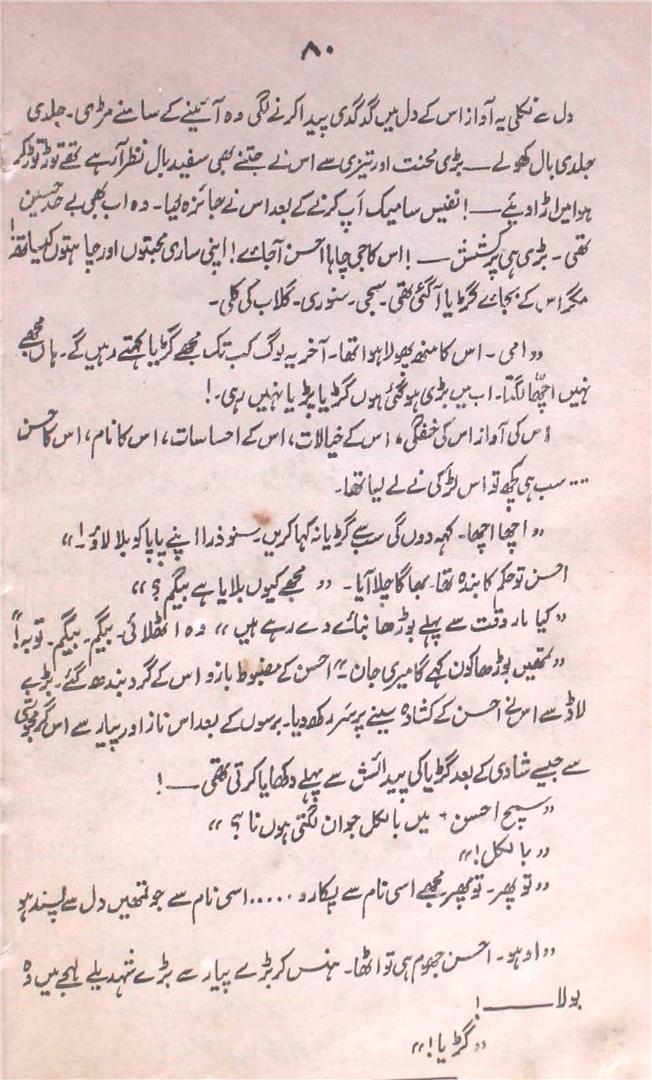 ۸۰
دل سے نکلی یہ آواز اس کے دل میں گدگدی پیدا کرنے لگی وہ آئینے کے سامنے مڑی۔ جلدی
جلدی بال کھولے — بڑی محنت اور تیزی سے اس نے جتنے بھی سفید بال نظر آرہے تھے توڑ توڑ کر
ہوا میں اڑا دیئے —! نفیس سا میک اَپ کرنے کے بعد اس نے جائزہ لیا۔ وہ اب بھی بے حد حسین
تھی۔ بڑی ہی پُرکشش —! اس کا جی چاہا احسن آجائے! اپنی ساری محبتوں اور چاہتوں کیساتھ!
مگر اس کے بجائے گڑیا آگئی تھی۔ سجی۔ سنوری۔ گلاب کی کلی۔
"امی۔ اس کا منھ پھولا ہوا تھا۔ آخر یہ لوگ کب تک مجھے گڑیا کہتے رہیں گے۔ ہاں مجھے
نہیں اچھا لگتا۔ اب میں بڑی ہو گئی ہوں گڑیا پڑیا نہیں رہی۔!
اس کی آواز اس کی خفگی، اس کے خیالات، اس کے احساسات، اس کا نام، اس کا حسن
.... سب ہی کچھ تو اس لڑکی نے لے لیا تھا۔
"اچھا اچھا۔ کہہ دوں گی سب سے گڑیا نہ کہا کریں۔ سنو ذرا اپنے پاپا کو بلا لاؤ۔!"
احسن تو حکم کا بندہ تھا۔ بھاگا چلا آیا۔ "مجھے کیوں بلایا ہے بیگم؟"
"کیا یار وقت سے پہلے بوڑھا بنائے دے رہے ہیں" وہ اٹھلائی۔ بیگم۔ بیگم۔ توبہ!"
"تمھیں بوڑھا کون کہے گا میری جان۔" احسن کے مضبوط بازو اس کے گرد بندھ گئے۔ بڑے
لاڈ سے اس نے احسن کے کشادہ سینے پر سر رکھ دیا۔ برسوں کے بعد اس ناز اور پیار سے اس گرمجوشی
سے جیسے شادی کے بعد گڑیا کی پیدائش سے پہلے دکھایا کرتی تھی —!
"سچ احسن۔ میں بالکل جوان لگتی ہوں نا؟"
"بالکل!"
"تو پھر۔ تو پھر۔ مجھے اسی نام سے پکارو ..... اسی نام سے جو تمھیں دل سے پسند ہو
"اوہو۔ احسن جھوم ہی تو اٹھا۔ ہنس کر بڑے پیار سے بڑے شہدیلے لہجے میں وہ
بولا —!
"گڑیا!"